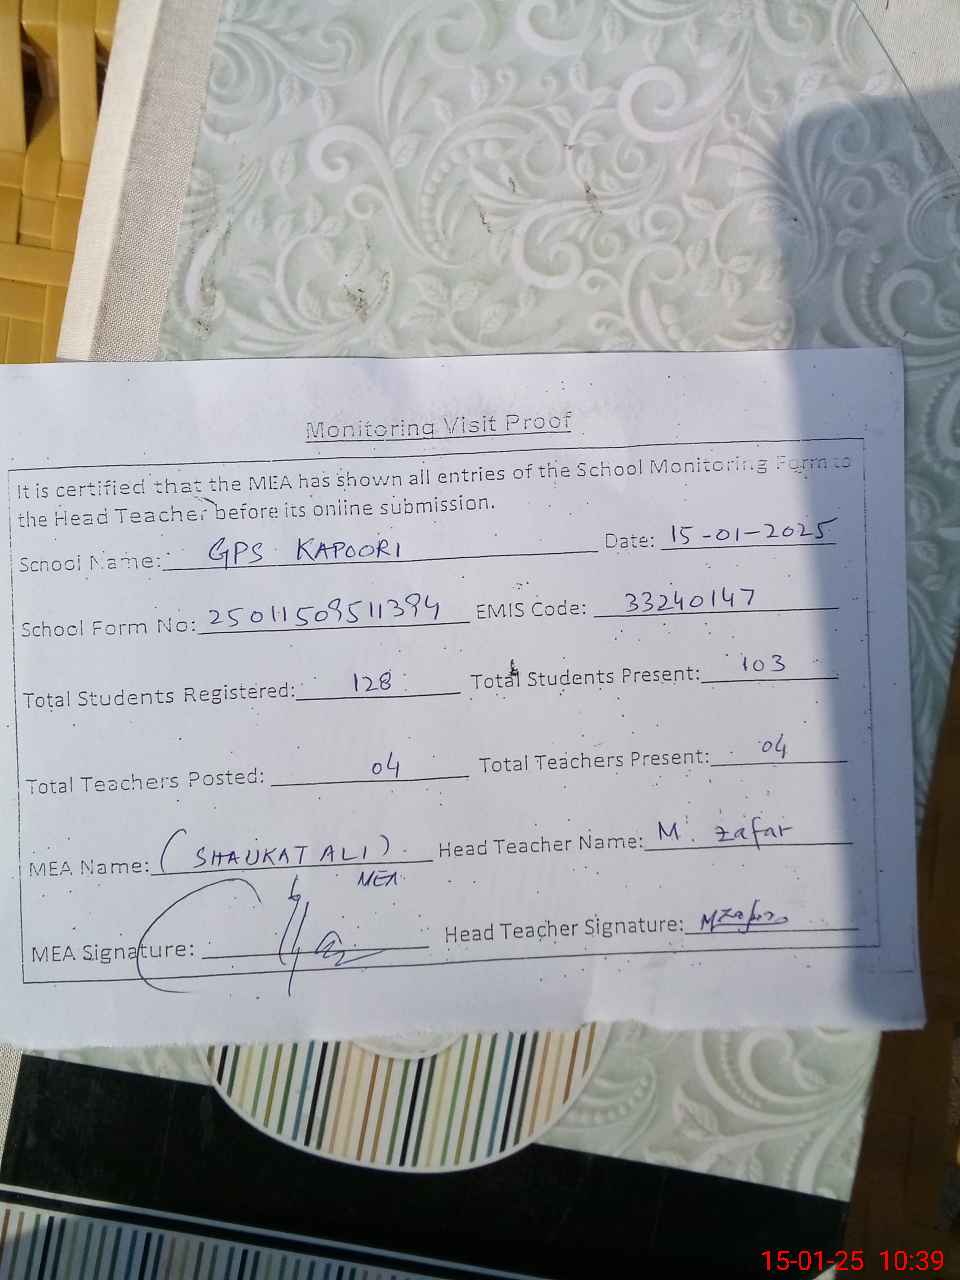 Monitoring Visit Proof
It is certified that the MEA has shown all entries of the School Monitoring Form to
the Head Teacher before its online submission.
School Name: GPS KAPOORI Date: 15-01-2025
School Form No: 25011509511394 EMIS Code: 33240147
Total Students Registered: 128 Total Students Present: 103
Total Teachers Posted: 04 Total Teachers Present: 04
MEA Name: (SHAUKAT ALI) Head Teacher Name: M. Zafar
MEA
MEA Signature: Head Teacher Signature: MZafar
15-01-25 10:39